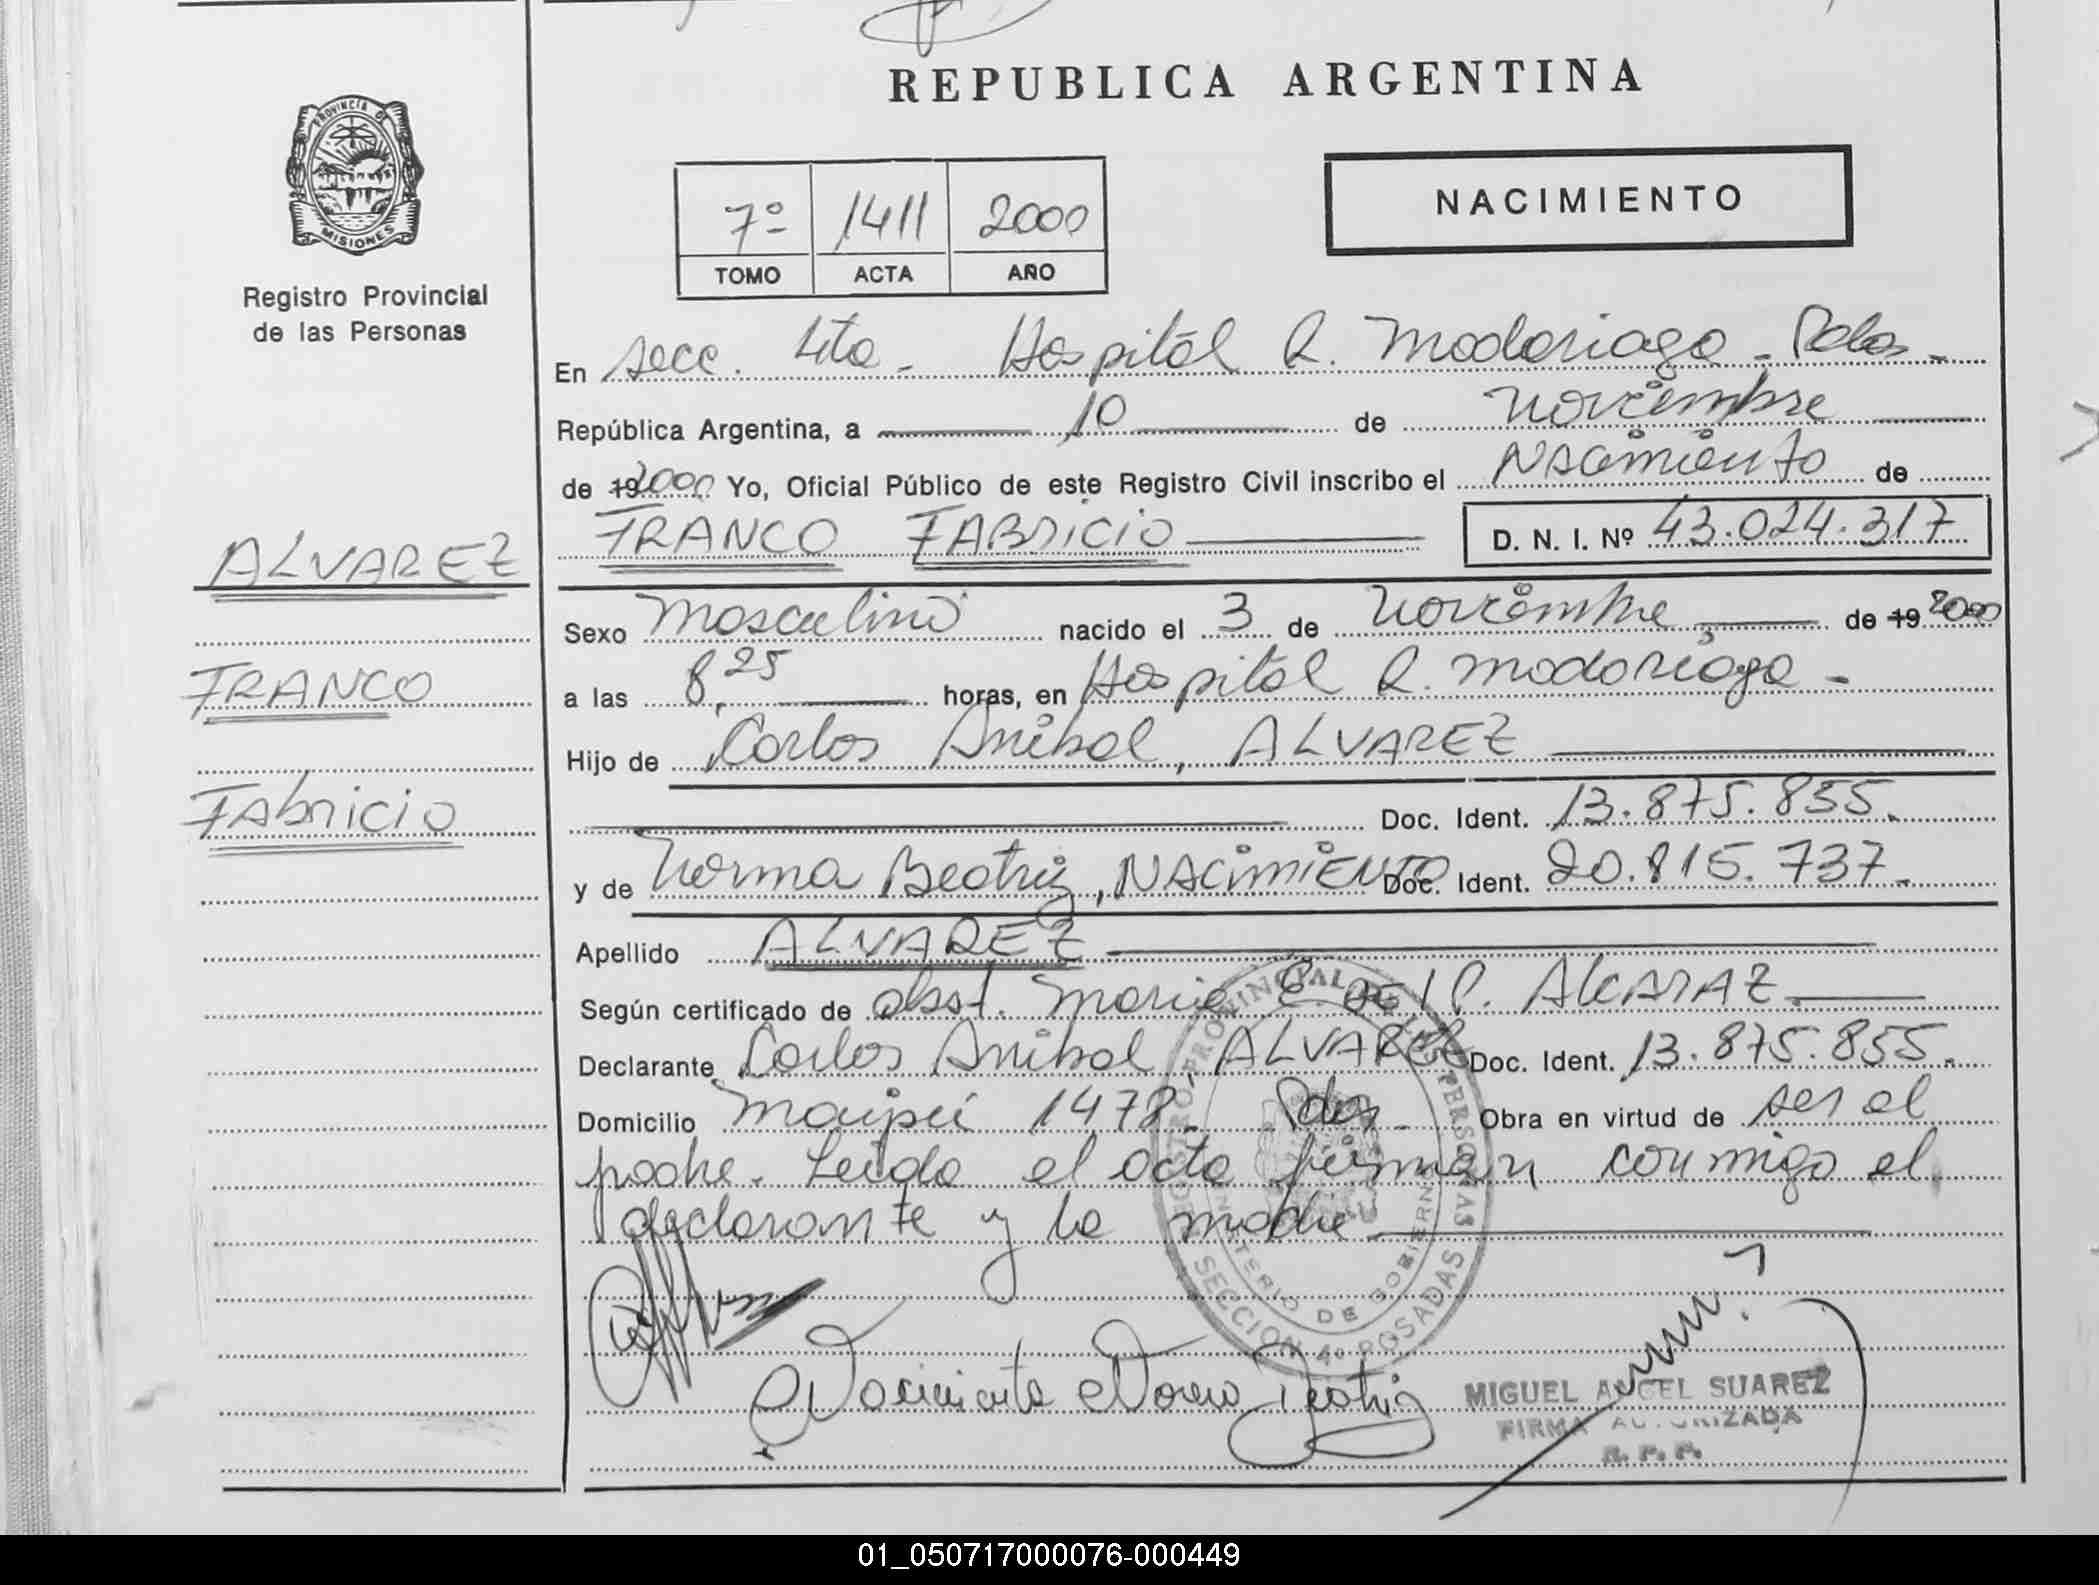 REPUBLICA ARGENTINA
PROVINCIA DE
MISIONES
Registro Provincial
de las Personas
NACIMIENTO
7º 1411 2000
TOMO ACTA AÑO
En Secc. 4ta - Hospital R. Madariaga - Pdas -
República Argentina, a 10 de Noviembre
de 192000 Yo, Oficial Público de este Registro Civil inscribo el NACimiento de
FRANCO FABricio D. N. I. Nº 43.024.317
ALVAREZ
FRANCO
Fabricio
Sexo Masculino nacido el 3 de Noviembre de 19 2000
a las 8,25 horas, en Hospital R. Madariaga -
Hijo de Carlos Anibal, ALVAREZ
Doc. Ident. 13.875.855.
y de Norma Beatriz, NACimiENTO Doc. Ident. 20.815.737.
Apellido ALVAREZ
Según certificado de obst. Maria E. de P. AlcARAZ
Declarante Carlos Anibal, ALVAREZ Doc. Ident. 13.875.855.
Domicilio Maipú 1478 - Pdas - Obra en virtud de ser el
padre. Leida el acta firman conmigo el
declarante y la madre
REGISTRO PROVINCIAL DE LAS PERSONAS
MINISTERIO DE GOBIERNO
SECCION 4º POSADAS
Nacimiento Norma Beatriz
MIGUEL ANGEL SUAREZ
FIRMA AUTORIZADA
R. P. P.
01_050717000076-000449